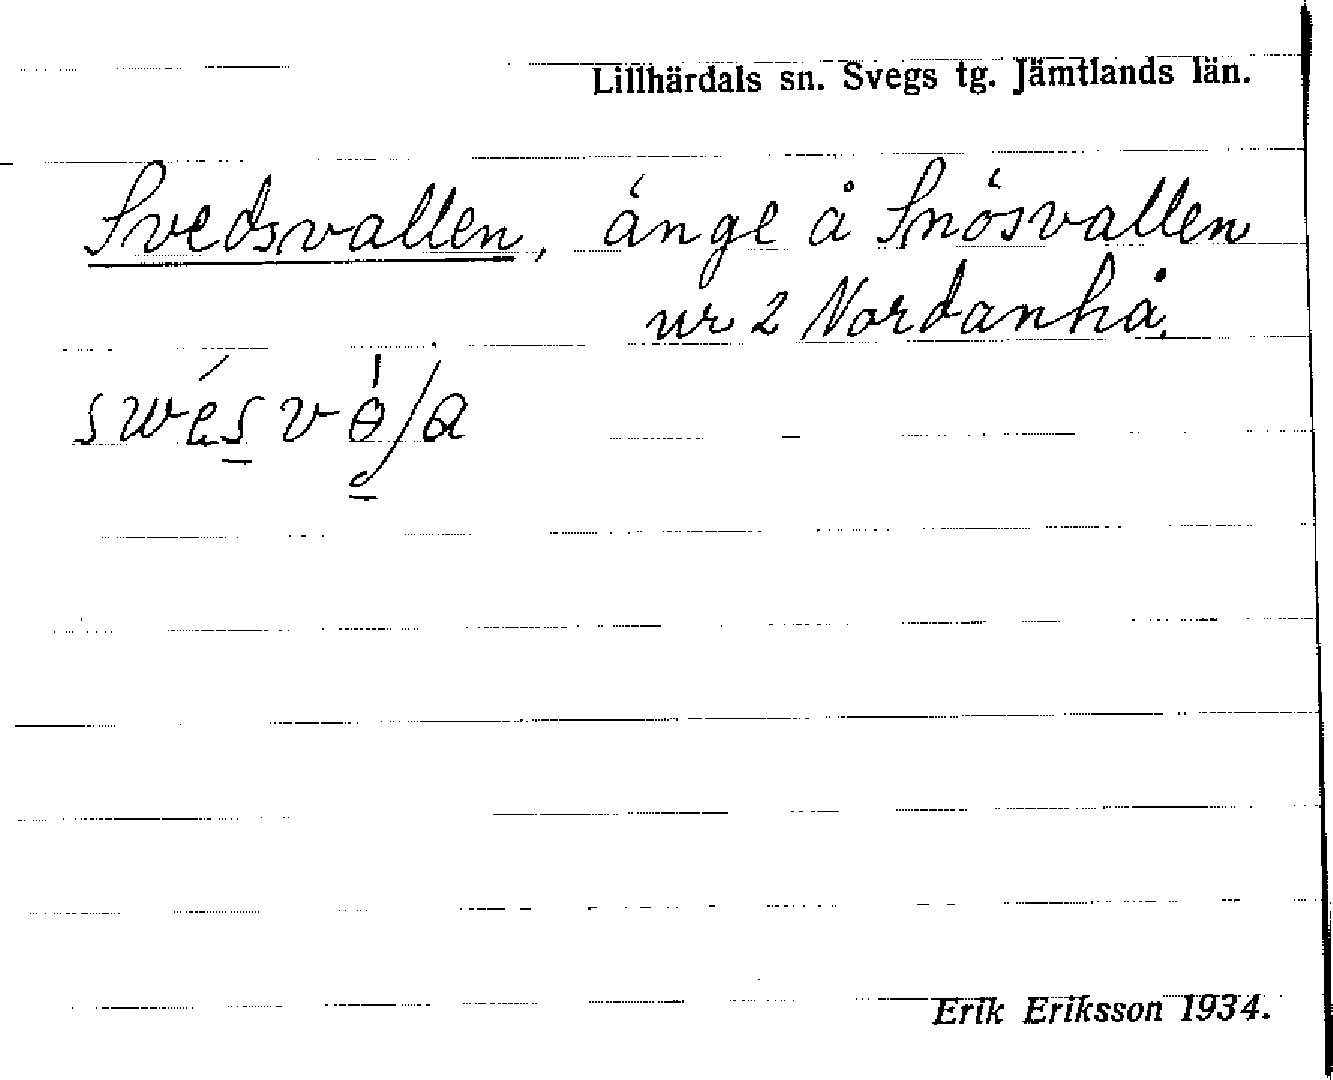 Lillhärdals sn. Svegs tg. Jämtlands län.
Svedsvallen, änge å Snösvallen
nr 2 Nordanhå.
Erik Eriksson 1934.